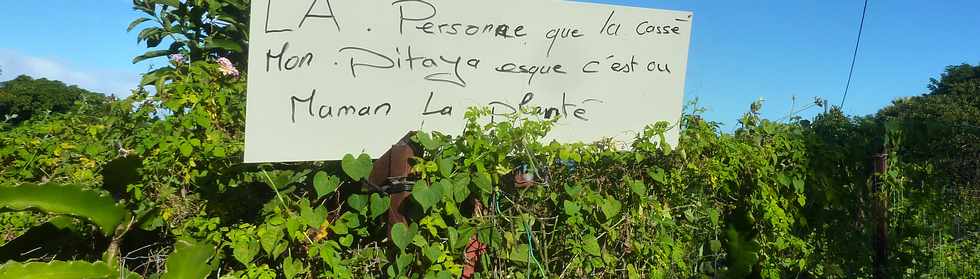 LA. Personne que la cassé
Mon. Pitaya esque c'est ou
Maman La planté